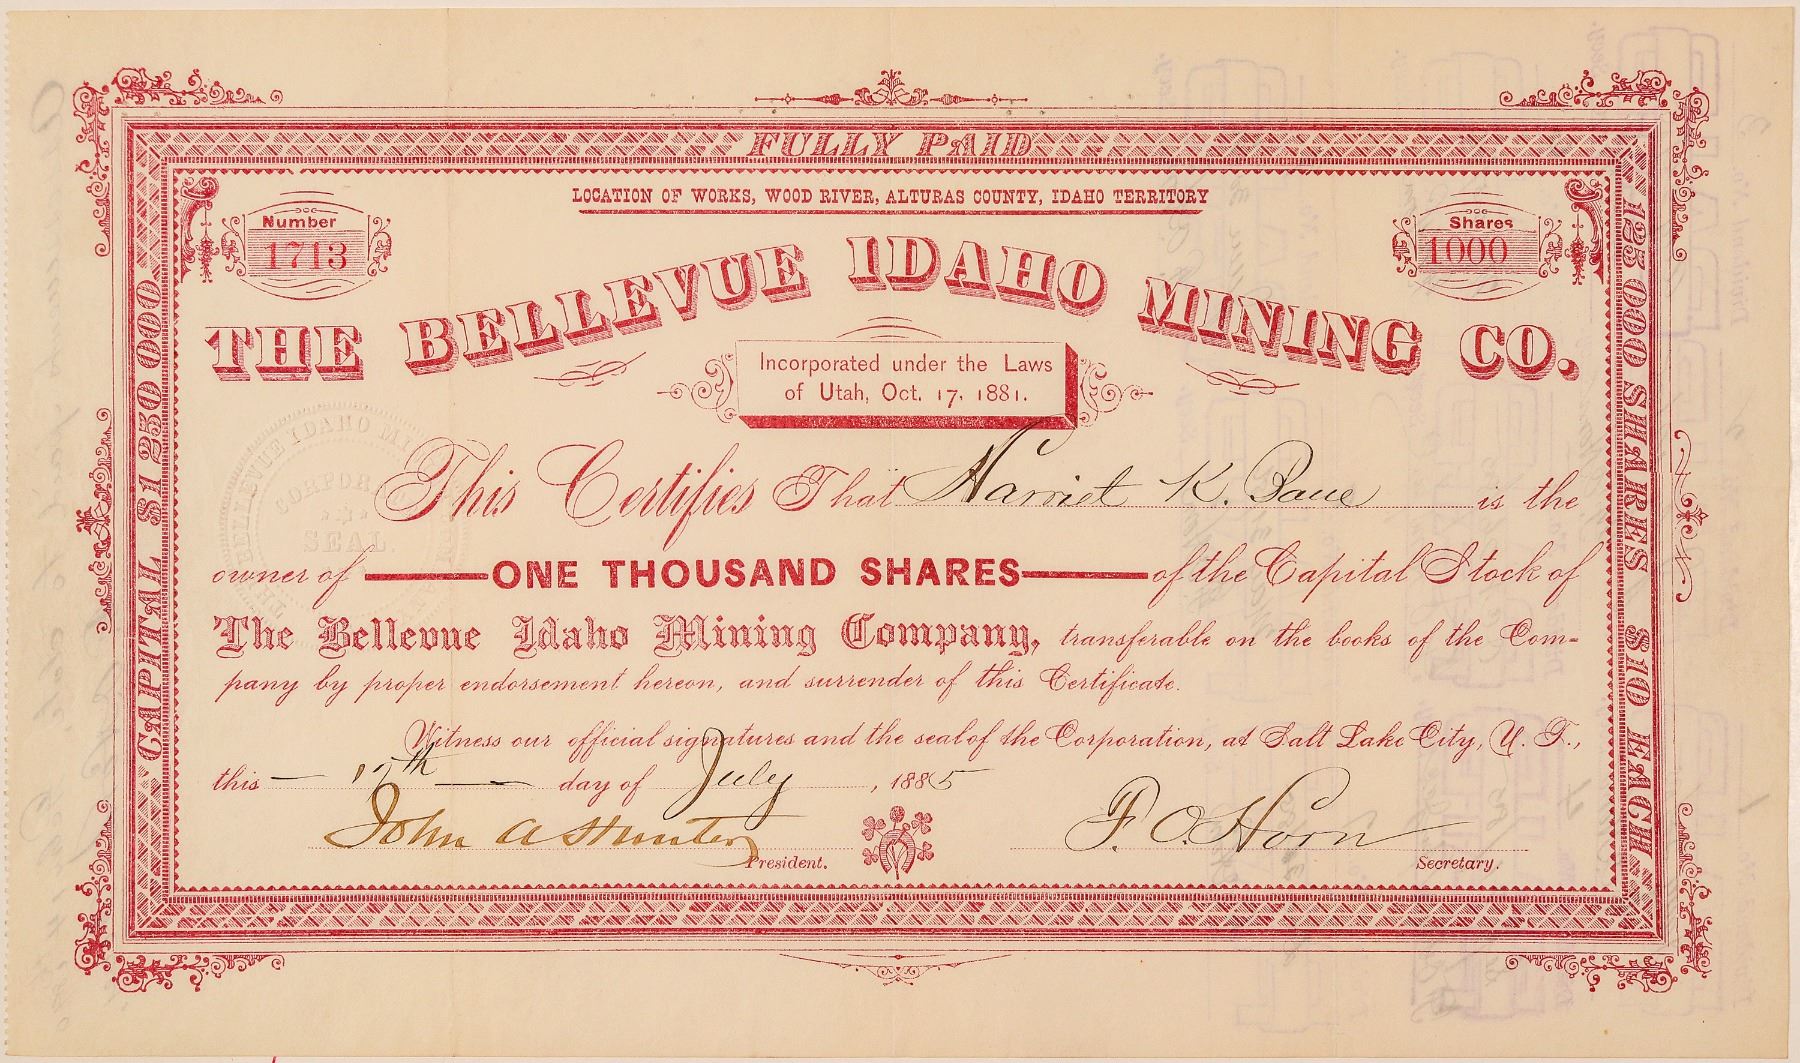 FULLY PAID
LOCATION OF WORKS, WOOD RIVER, ALTURAS COUNTY, IDAHO TERRITORY
Number
1713
Shares
1000
THE BELLEVUE IDAHO MINING CO.
Incorporated under the Laws
of Utah, Oct. 17, 1881.
CAPITAL $1 250 000
125 000 SHARES $10 EACH
BELLEVUE IDAHO
CORPORATE
SEAL.
This Certifies That Harriet K. is the
owner of ONE THOUSAND SHARES of the Capital Stock of
The Bellevue Idaho Mining Company, transferable on the books of the Com-
pany by proper endorsement hereon, and surrender of this Certificate.
Witness our official signatures and the seal of the Corporation, at Salt Lake City, U. T.,
this day of July, 1885
John A Hunter
President.
F. O. Horn
Secretary.